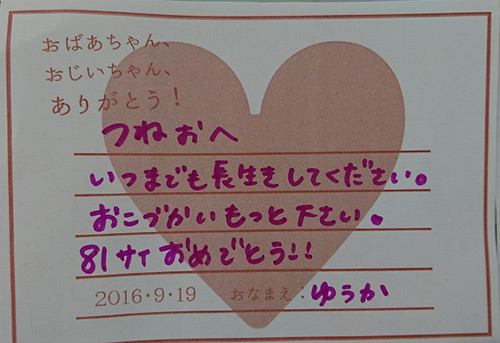 おばあちゃん、
おじいちゃん、
ありがとう！
つねおへ
いつまでも長生きしてください。
おこづかいもっと下さい。
81サイおめでとう!!
2016・9・19 おなまえ：ゆうか